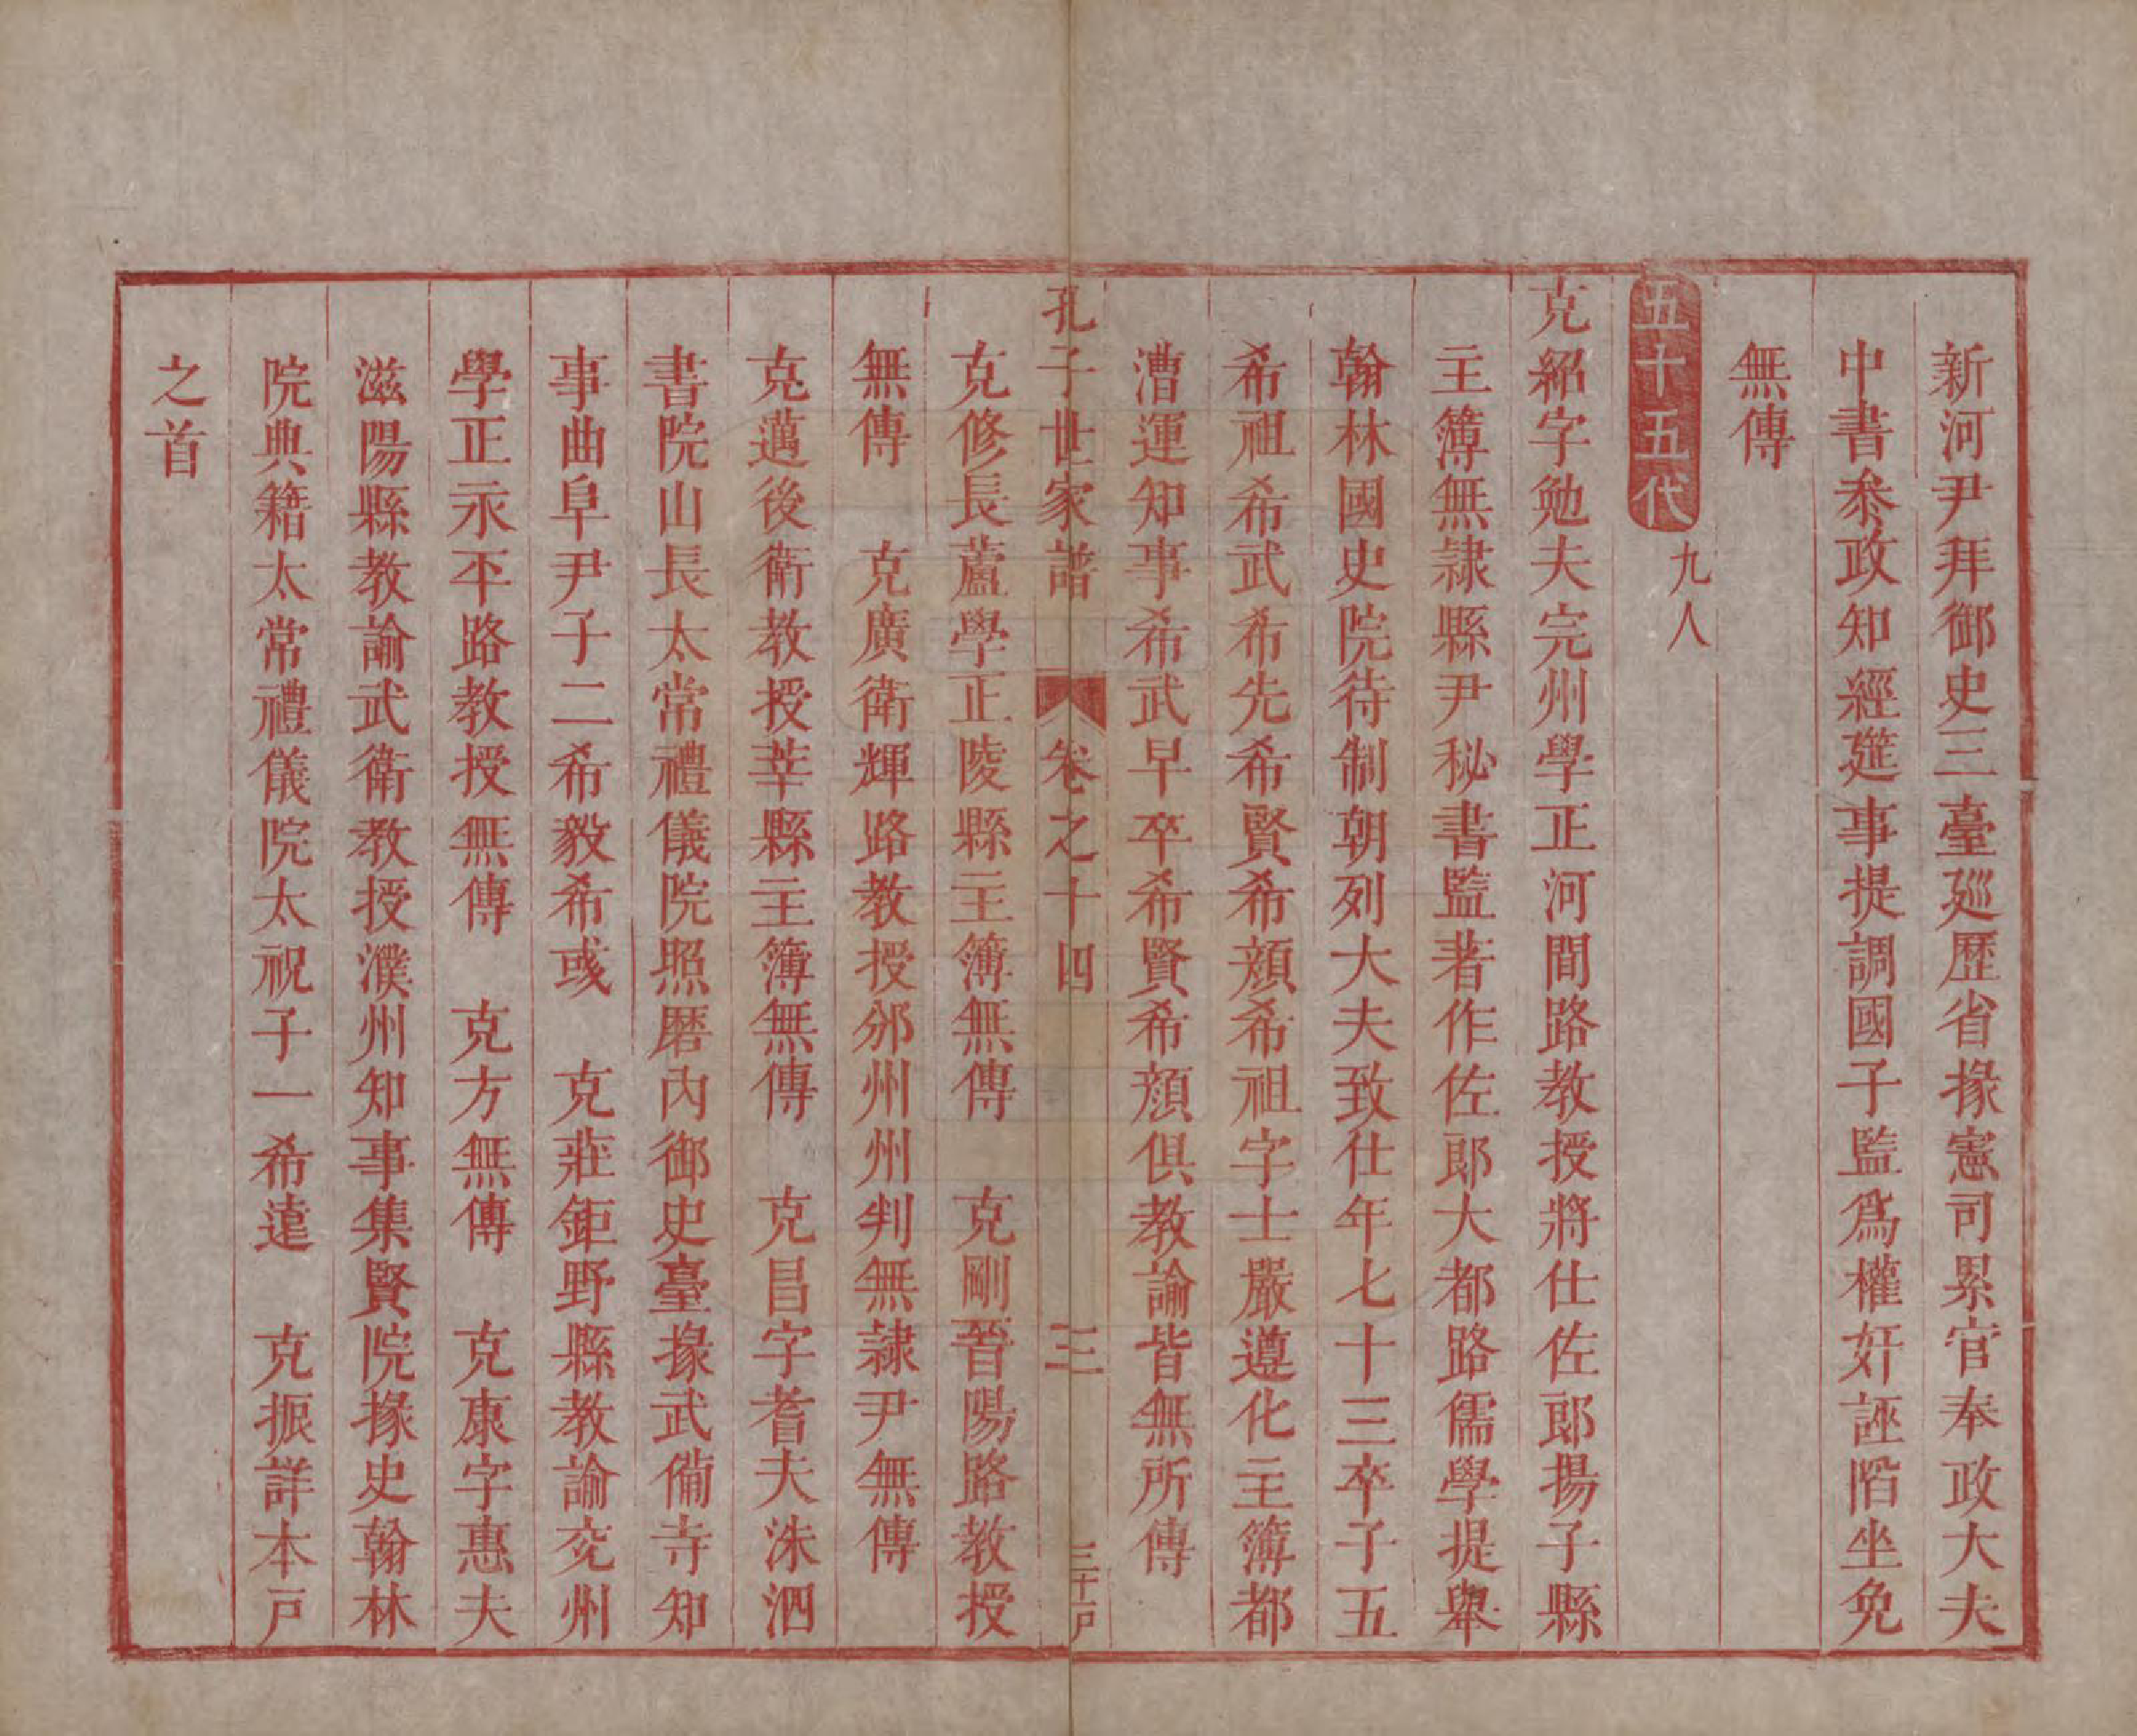 新河尹拜御史三臺廵歷省掾憲司累官奉政大夫
中書叅政知經筵事提調國子監爲權奸誣陷坐免
無傳
五十五代 九人
克紹字勉夫完州學正河間路教授將仕佐郎揚子縣
主簿無隸縣尹秘書監著作佐郎大都路儒學提舉
翰林國史院待制朝列大夫致仕年七十三卒子五
希祖希武希先希賢希顔希祖字士嚴遵化主簿都
漕運知事希武早卒希賢希顔俱教諭皆無所傳
孔子世家譜 卷之十四 三 三十戸
克修長蘆學正陵縣主簿無傳 克剛晉陽路教授
無傳 克廣衛輝路教授邠州州判無隸尹無傳
克邁後衛教授莘縣主簿無傳 克昌字耆夫洙泗
書院山長太常禮儀院照磨內御史臺掾武備寺知
事曲阜尹子二希毅希彧 克莊鉅野縣教諭兖州
學正永平路教授無傳 克方無傳 克康字惠夫
滋陽縣教諭武衛教授濮州知事集賢院掾史翰林
院典籍太常禮儀院太祝子一希遠 克振詳本戸
之首